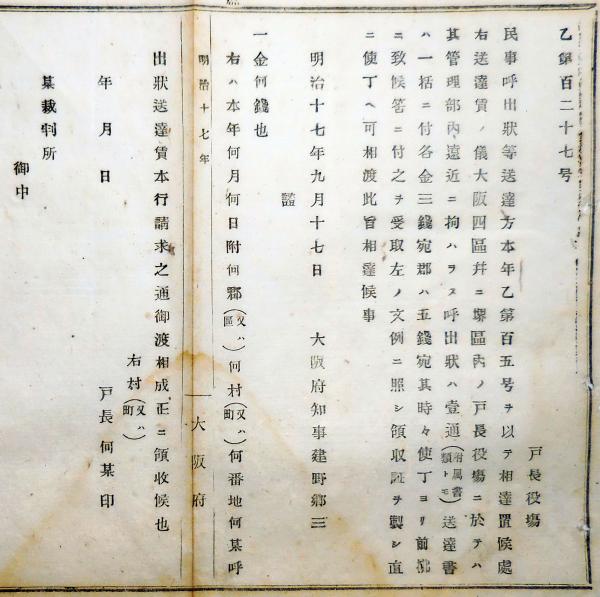 乙第百二十七号
戸長役場
民事呼出狀等送達方本年乙第百五号ヲ以テ相達置候處
右送達賃ノ儀大阪四區幷ニ堺區內ノ戸長役場ニ於テハ
其管理部內遠近ニ拘ハラス呼出狀ハ壹通（附属書類トモ）送達書
ハ一括ニ付各金三錢宛郡ハ五錢宛其時々使丁ヨリ前拂
ニ致候筈ニ付之ヲ受取左ノ文例ニ照シ領収証ヲ製シ直
ニ使丁ヘ可相渡此旨相達候事
明治十七年九月十七日 大阪府知事建野郷三
證
一金何錢也
右ハ本年何月何日附何郡（又ハ區）何村（又ハ町）何番地何某呼
明治十七年 大阪府
出狀送達賃本行請求之通御渡相成正ニ領收候也
右村（又ハ町）
年月日 戸長何某印
某裁判所
御中